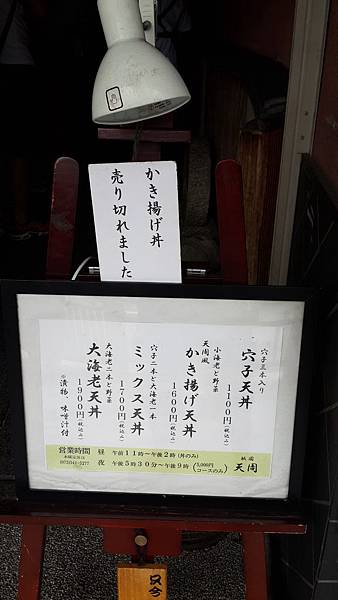 かき揚げ丼
売り切れました
穴子三本入り
穴子天丼
1100円(税込み)
小海老と野菜
天周風
かき揚げ天丼
1600円(税込み)
穴子二本と大海老一本
ミックス天丼
1700円(税込み)
大海老二本と野菜
大海老天丼
1900円(税込み)
※漬物、味噌汁付
営業時間
昼 午前11時〜午後2時(丼のみ)
夜 午後5時30分〜午後9時(5,000円コースのみ)
祇園
天周
只今